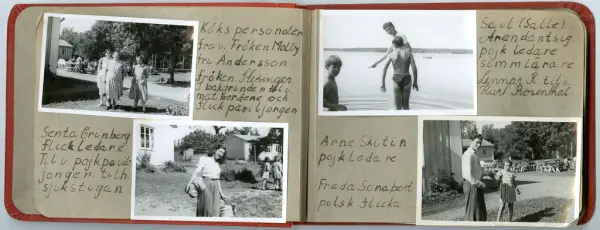 Kökspersonalen
fr.v. Fröken Molly
fru Andersson
Fröken
I bakgrunden t.v.
matborden och
flickpaviljongen
Senta Grünberg
flickledare
T.v. pojkpavil-
jongen, t.h.
sjukstugan
Saul (Salle)
pojkledare
simmlärare
Lennart R t.v.
Kurt Rosenthal
Arne
pojkledare
Freda
polsk flicka